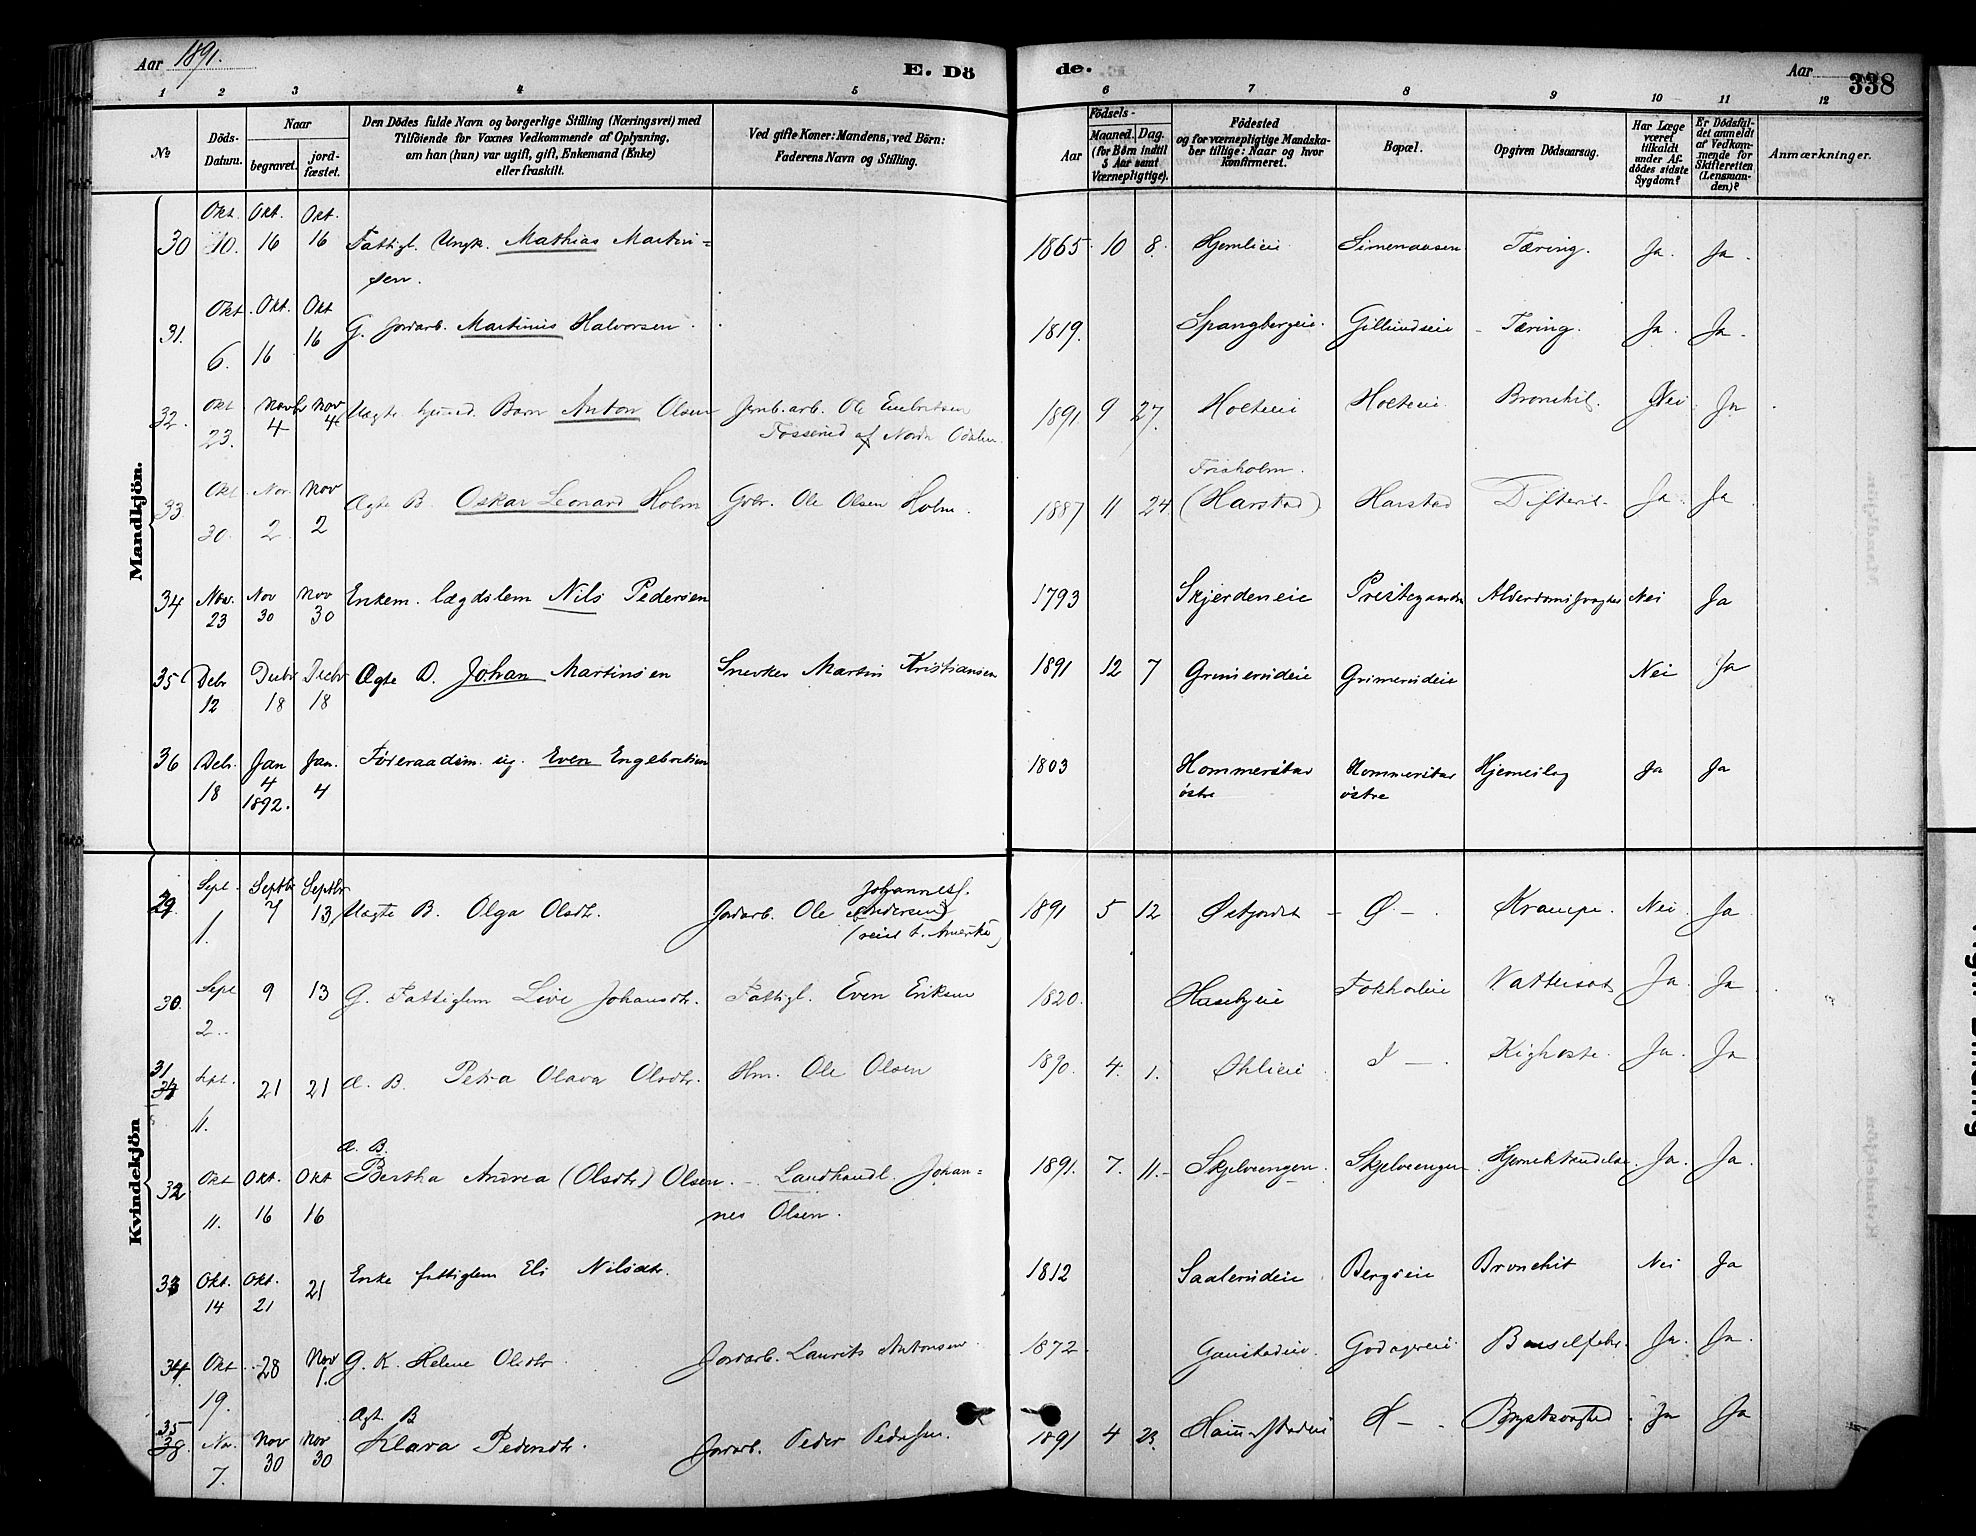 Aar 1891.
E. Dö
de.
Aar
338
1 2 3 4 5 6 7 8 9 10 11 12
No
Döds-Datum.
Naar
begravet.
jord-fæstet.
Den Dödes fulde Navn og borgerlige Stilling (Næringsvei) med
Tilföiende for Voxnes Vedkommende af Oplysning.
om han (hun) var ugift, gift, Enkemand (Enke)
eller fraskilt.
Ved gifte Koner: Mandens, ved Börn:
Faderens Navn og Stilling.
Födsels-
Aar
Maaned. Dag.
(for Börn indtil
5 Aar samt
Værnepligtige).
Födested
og for værnepligtige Mandska-
ber tillige: Naar og hvor
Konfirmeret.
Bopæl.
Opgiven Dödsaarsag.
Har Læge
været
tilkaldt
under Af-
dödes sidste
Sygdom?
Er Dödsfal-
det anmeldt
af Vedkom-
mende for
Skifteretten
(Lensman-
den)?
Anmærkninger.
Mandkjön.
30 Okt. 10. Okt. 16 Okt. 16 Fattigl. Ungk. Mathias Martin=
sen. 1865 10 8. Hjemlieie Simenaasen Tæring. Ja. Ja.
31. Okt. 6. Okt. 16 Okt 16 G. Jordarb. Martinus Halvorsen. 1819. Spangbergeie. Gillundseie Tæring. Ja. Ja.
32. Okt 23. Novbr 4 Nov 4 Uægte Barn Anton Olsen Jernb.arb. Ole Embretsen
Fossend af Nordre Odalen. 1891. 9 27. Holteeie Holteeie Bronchit. Nei Ja.
33. Okt 30. Nov. 2 Nov 2 Ægte B. Oskar Leonard Holm Gbr. Ole Olsen Holm. 1887 11 24
Frisholm.
(Harstad) Harstad Difterit. Ja. Ja.
34 Nov. 23 Nov 30 Nov 30 Enkem. lægdslem Nils Pedersen 1793 Skjerdeneie Prestegaarden Alderdomssvaghed Nei Ja
35 Debr 12 Decbr 18 Decbr 18 Ægte D. Johan Martinsen Snerker Martin Kristiansen 1891 12 7 Grimerudeie Grimerudeie Nei Ja
36 Debr. 18 Jan 4 1892. Jan. 4 Föderaadsm. ug. Even Engebretsen 1803 Hommerstad
östre Hommerstad
östre Hjerneslag Ja Ja
Kvindekjön
29 Sept. 1. Septbr 7 Septbr 13 Uægte B. Olga Olsdtr. Jordarb. Ole Johannesf.
(Andersen)
(reist t. Amerika) 1891 5 12 Østjordet – Ø –. Krampe. Nei. Ja.
30. Sept 2. 9 13 G. Fattiglem Live Johansdtr. Fattigl. Even Eriksen 1820. Hasebyeie Fokholeie Vattersot Ja. Ja.
31 Sept. 11. 21 21 Æ. B. Petra Olava Olsdtr. Hm. Ole Olsen 1890. 4. 1. Ohlieie. – Kighoste. Ja. Ja
32 Okt 11. Okt. 16 Okt 16 Æ. B.
Bertha Andrea (Olsdtr) Olsen. – Landhandl. Johan=
nes Olsen. 1891. 7. 11. – Skjelveengen. Skjelveengen. Hjernebetændelse. Ja. Ja.
33 Okt. 14 Okt. 21 21 Enke fattiglem Eli Nilsdtr. 1812 Saalerudeie Bergseie Bronchit Nei Ja
34 Okt 19. 28 Nov 1. G. K. Helene Olsdtr. Jordarb. Laurits Antonsen 1872 Gaustadeie. Godagereie Barselfeber. Ja. Ja.
35 Nov. 7. Nov 30 Nov 30 Ægt. B
Klara Pedersdtr. Jordarb. Peder Pedersen. 1891 4 23. – Brystsvaghed. Ja Ja